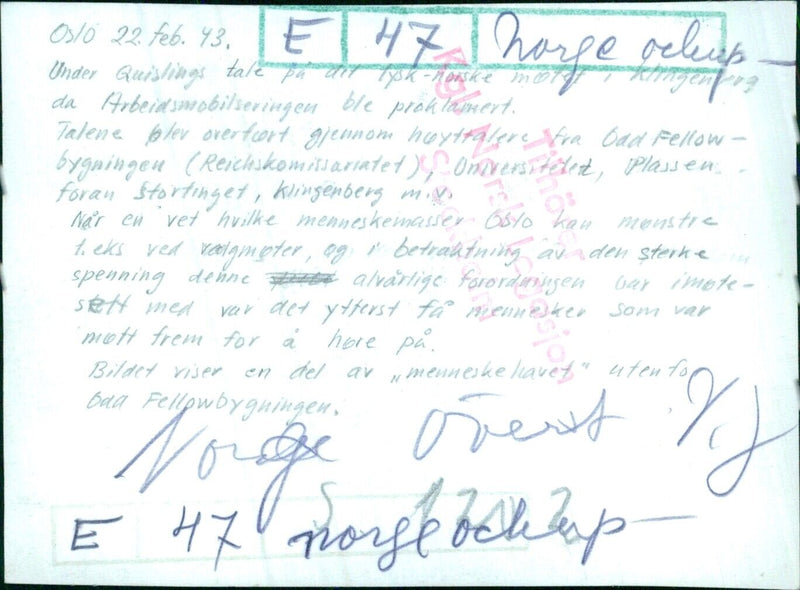 Oslo 22. feb. 43.
E 47 Norge ockup—
Under Quislings tale på det tysk-norske møtet i Klingenberg
da Arbeidsmobilseringen ble proklamert.
Talene blev overført gjennom høyttalere fra Odd Fellow-
bygningen (Reichskomissariatet), Universitetet, Plassen
foran Stortinget, Klingenberg m.v.
Når en vet hvilke menneskemasser Oslo kan mønstre
t.eks ved valgmøter, og i betraktning av den sterke
spenning denne alvårlige forordningen var imøte-
sett med var det ytterst få mennesker som var
møtt frem for å høre på.
Bildet viser en del av „menneskehavet" utenfo
Odd Fellowbygningen.
Tilhører
Kgl. Norsk Legasjon
Stockholm
Norge överst
E 47 norge ockup—